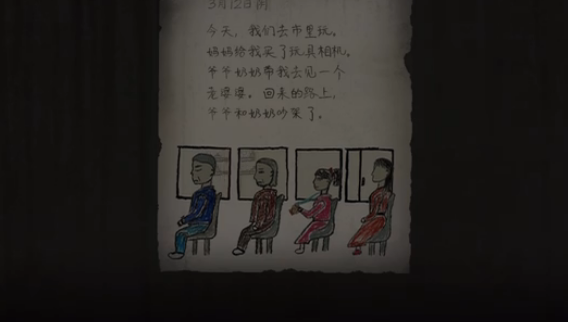 3月12日 阴
今天，我们去市里玩，
妈妈给我买了玩具相机。
爷爷奶奶带我去见一个
老婆婆。回来的路上，
爷爷和奶奶吵架了。